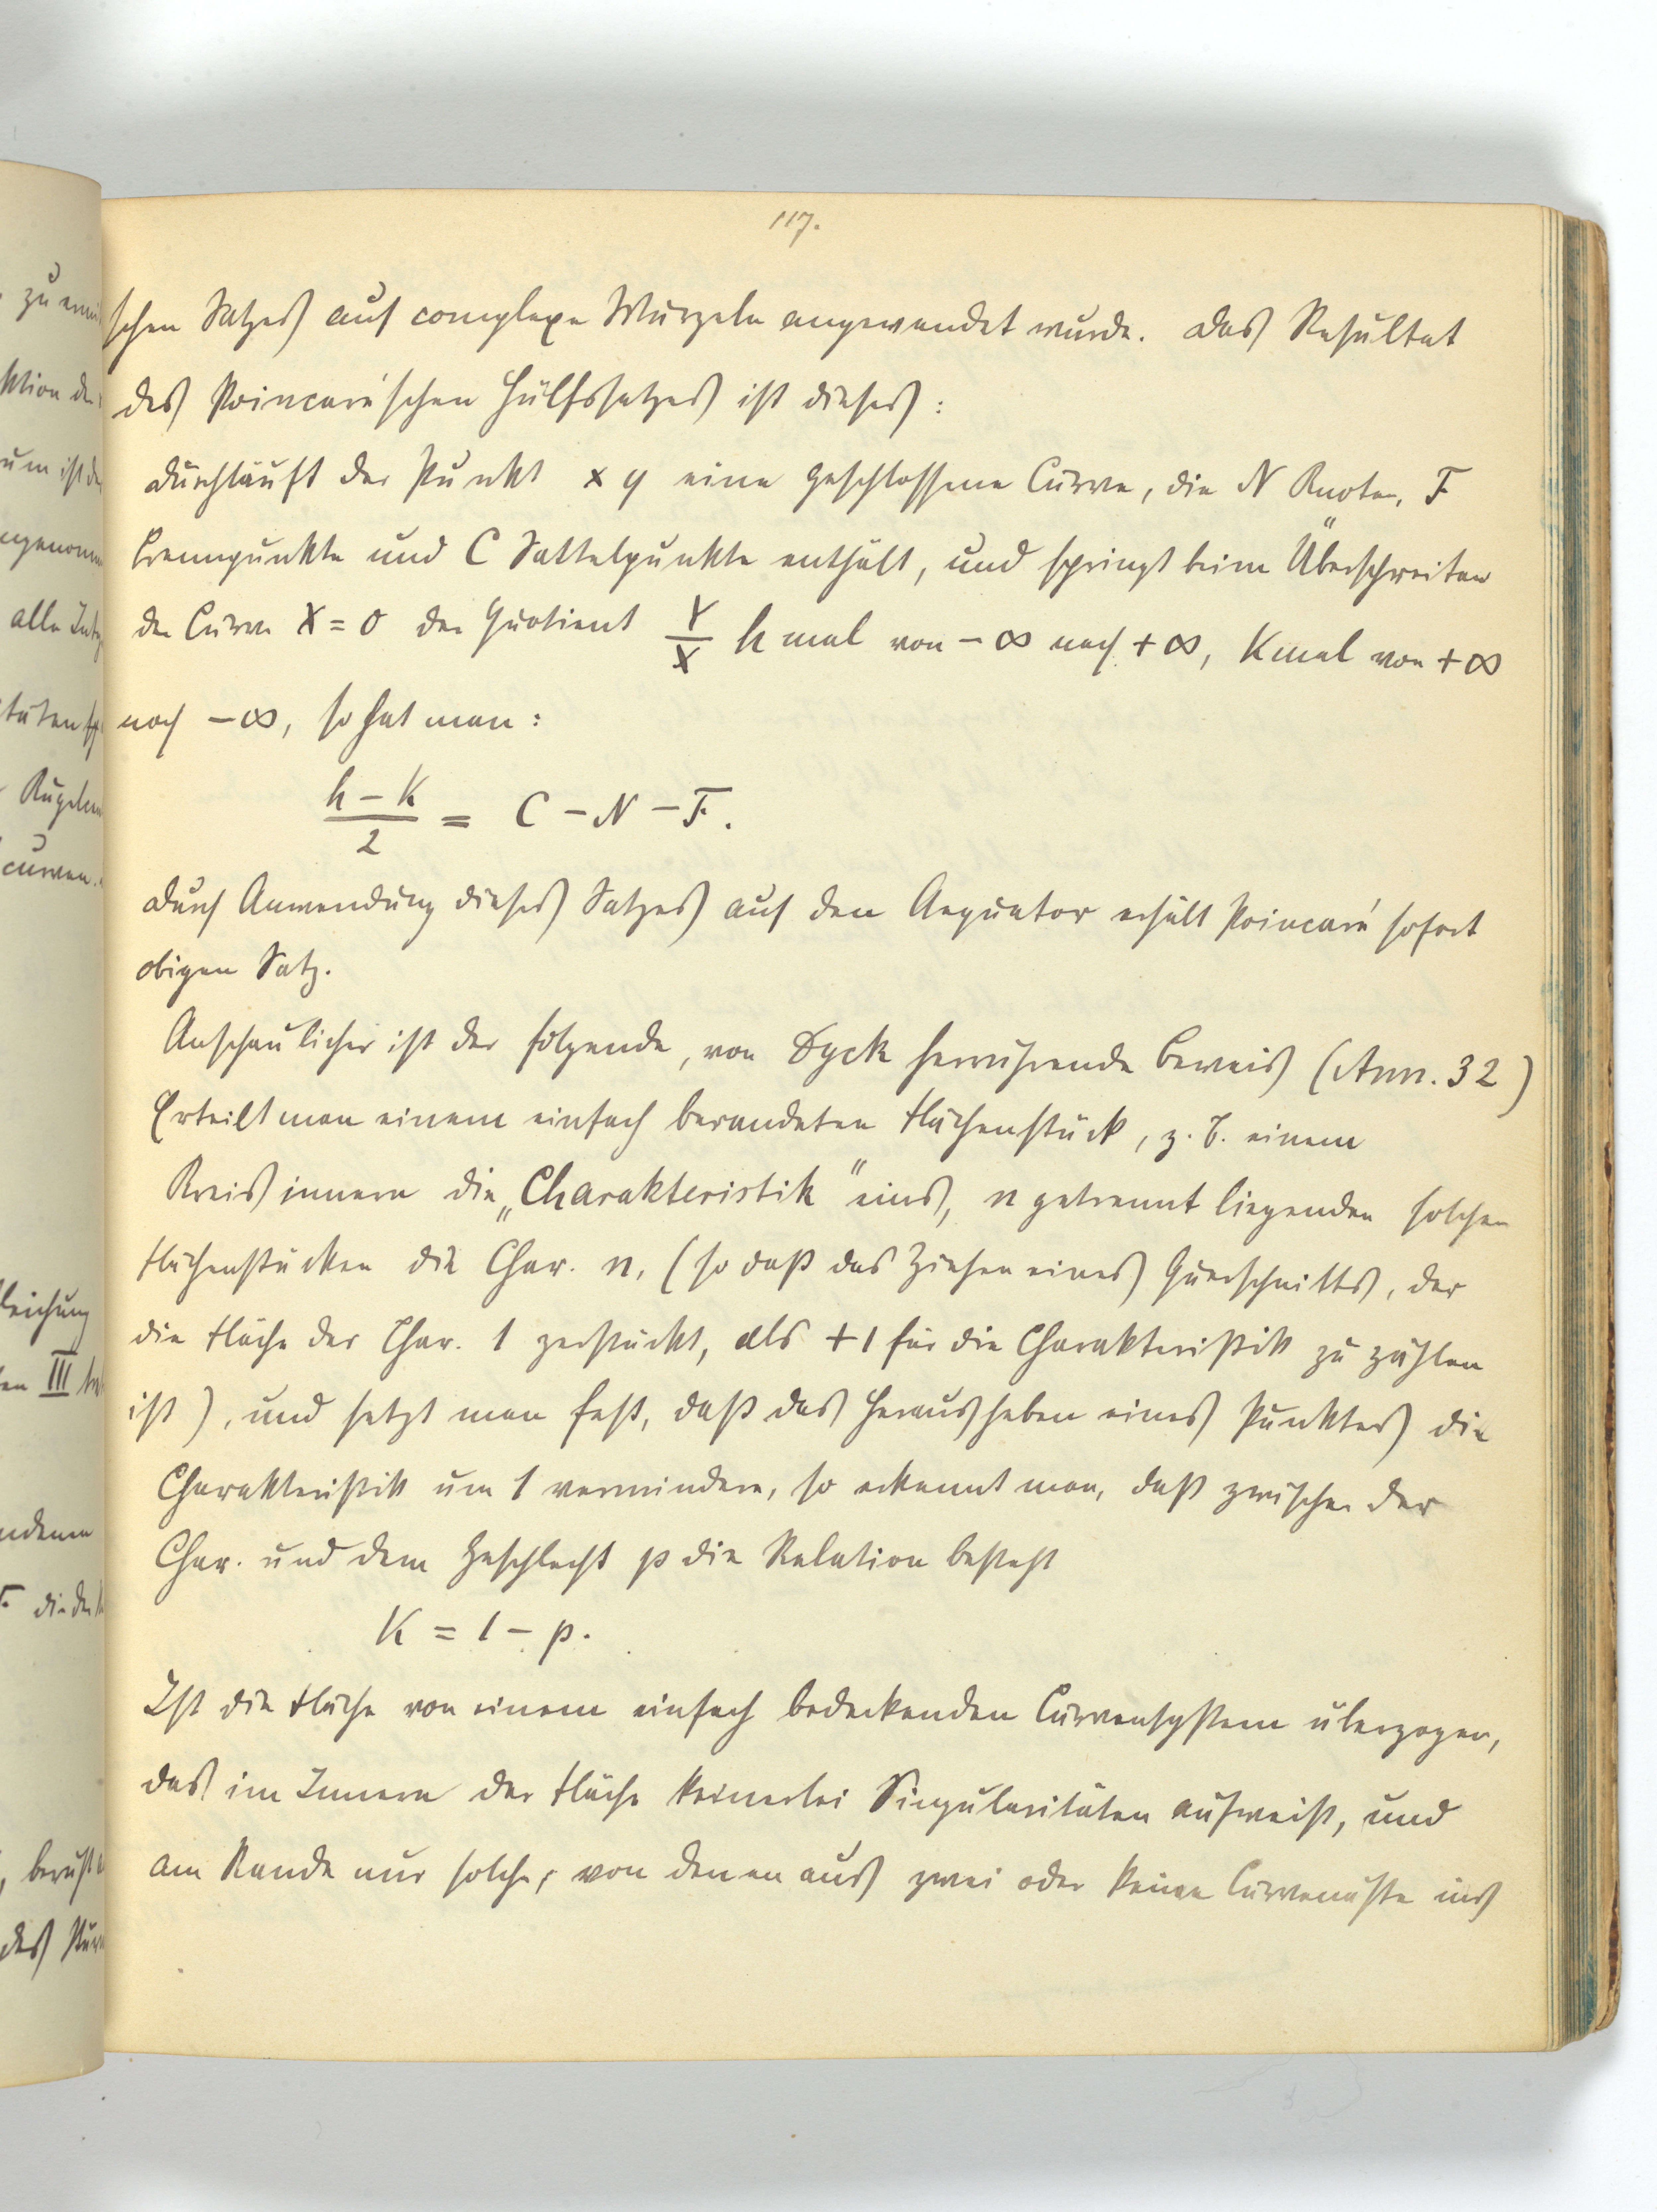 117.
schen Satzes auf complexe Wurzeln angewendet wurde. Das Resultat
des Poincaré'schen Hülfssatzes ist dieses:
Durchläuft der Punkt x y eine geschlossene Curve, die N Knoten, F
Brennpunkte und C Sattelpunkte enthält, und springt beim Überschreiten
der Curve X = 0 der Quotient Y/X h mal von − ∞ nach + ∞, K mal von + ∞
nach − ∞, so hat man:
(h − K)/2 = C − N − F.
Durch Anwendung dieses Satzes auf den Aequator erhält Poincaré sofort
obigen Satz.
Anschaulicher ist der folgende, von Dyck herrührende Beweis (Ann. 32)
Erteilt man einem einfach berandeten Flächenstück, z. B. einem
Kreisinnern die „Charakteristik" eins, n getrennt liegenden solchen
Flächenstücken die Char. n, (so daß das Ziehen eines Querschnitts, der
die Fläche der Char. 1 zerstückt, als + 1 für die Charakteristik zu zählen
ist), und setzt man fest, daß das Herausheben eines Punktes die
Charakteristik um 1 vermindere, so erkennt man, daß zwischen der
Char. und dem Geschlecht p die Relation besteht
K = 1 − p.
Ist die Fläche von einem einfach bedeckenden Curvensystem überzogen,
das im Innern der Fläche keinerlei Singularitäten aufweist, und
am Rande nur solche, von denen aus zwei oder keine Curvenäste ins